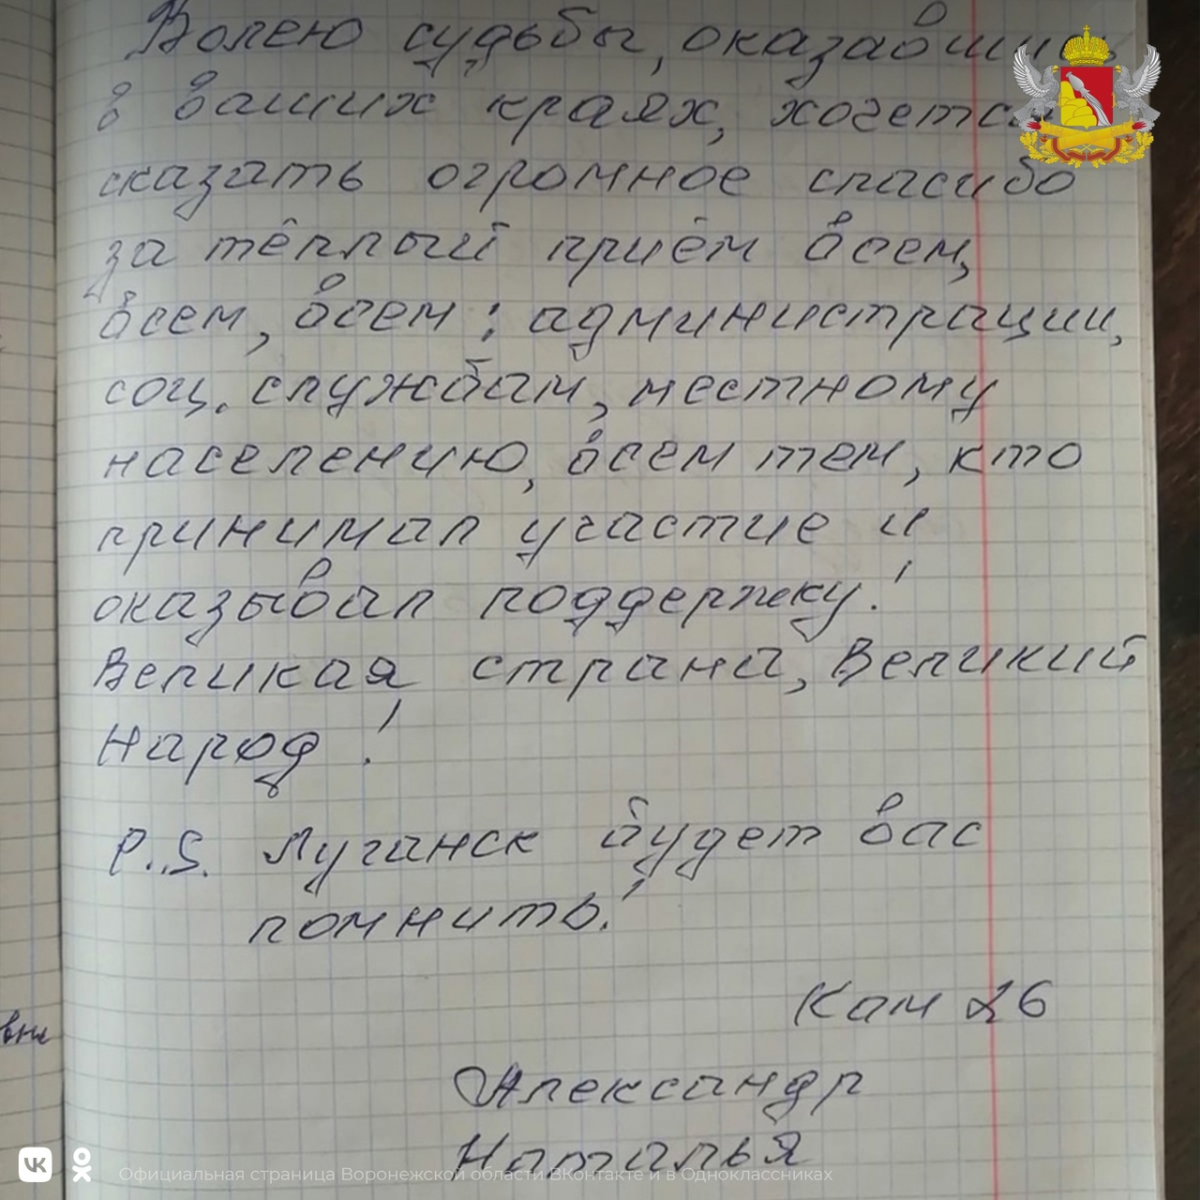 Волею судьбы, оказавшись
в ваших краях, хочется
сказать огромное спасибо
за тёплый приём всем,
всем, всем: администрации,
соц. службам, местному
населению, всем тем, кто
принимал участие и
оказывал поддержку!
Великая страна, Великий
Народ!
P.S. Луганск будет вас
помнить!
Ком 26
Александр
Наталья
Официальная страница Воронежской области ВКонтакте и в Одноклассниках